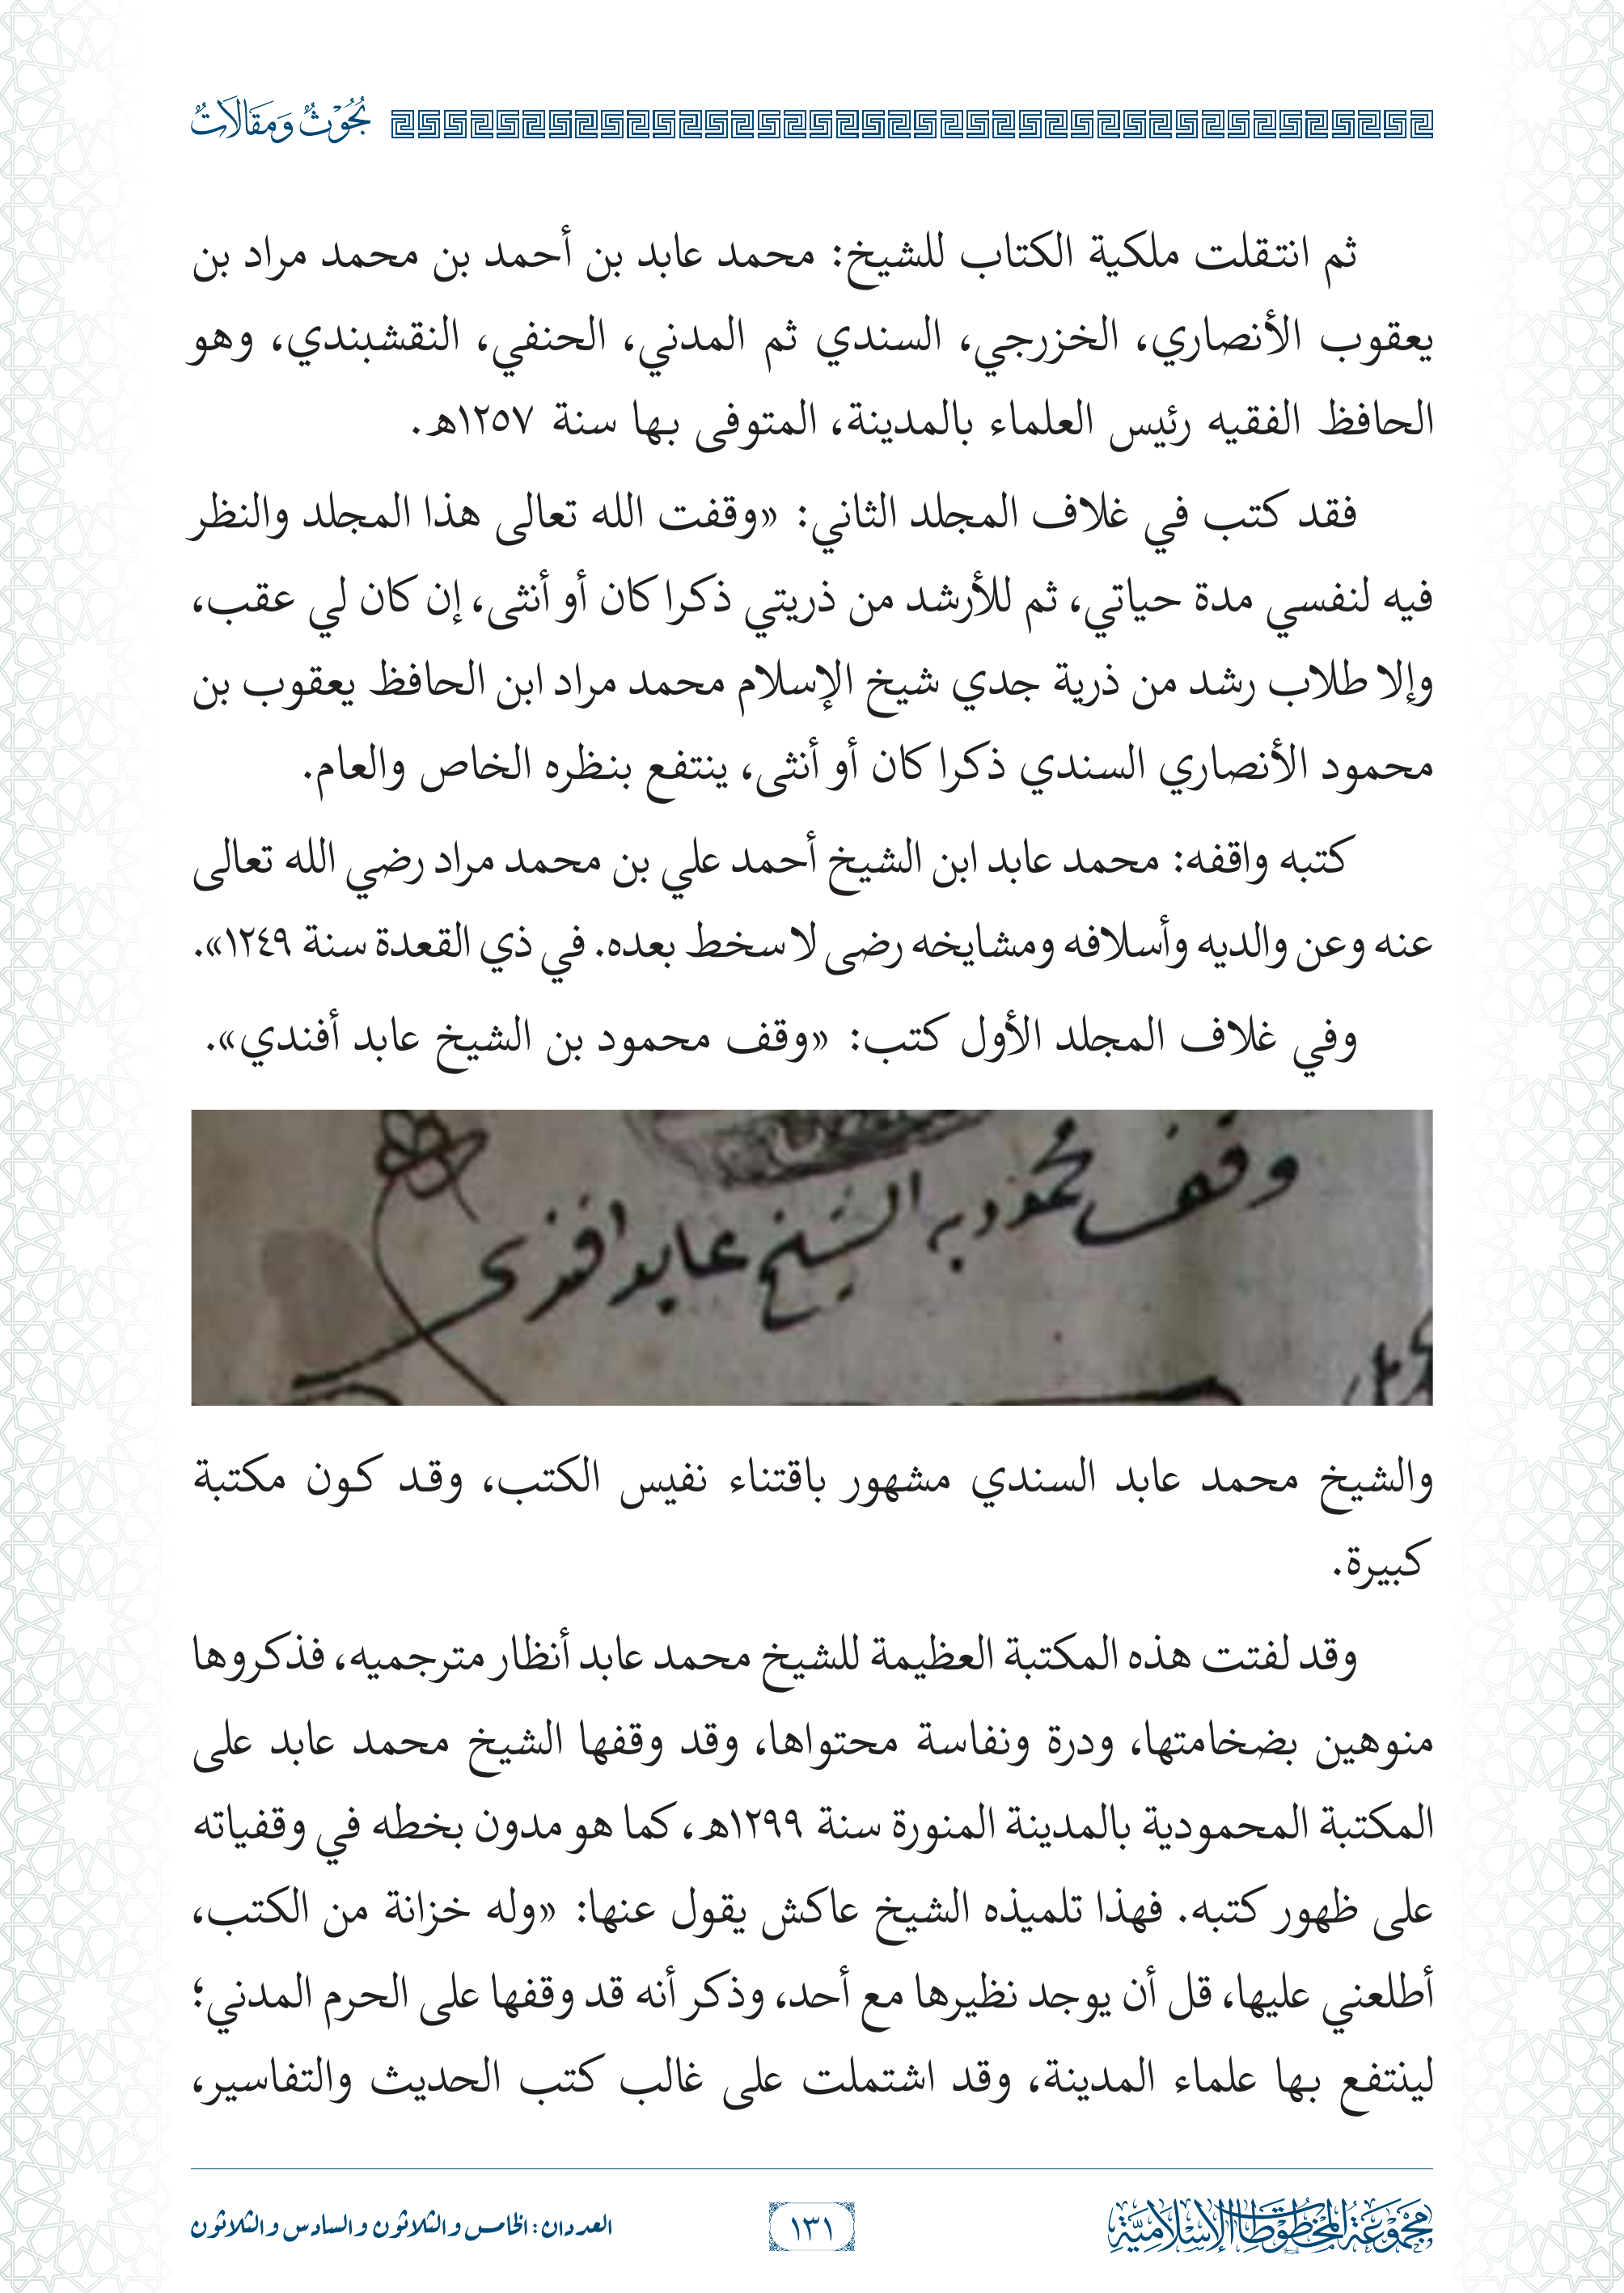 بُحُوْثٌ وَمَقَالَاتٌ
ثم انتقلت ملكية الكتاب للشيخ: محمد عابد بن أحمد بن محمد مراد بن
يعقوب الأنصاري، الخزرجي، السندي ثم المدني، الحنفي، النقشبندي، وهو
الحافظ الفقيه رئيس العلماء بالمدينة، المتوفى بها سنة ١٢٥٧هـ.
فقد كتب في غلاف المجلد الثاني: «وقفت الله تعالى هذا المجلد والنظر
فيه لنفسي مدة حياتي، ثم للأرشد من ذريتي ذكرا كان أو أنثى، إن كان لي عقب،
وإلا طلاب رشد من ذرية جدي شيخ الإسلام محمد مراد ابن الحافظ يعقوب بن
محمود الأنصاري السندي ذكرا كان أو أنثى، ينتفع بنظره الخاص والعام.
كتبه واقفه: محمد عابد ابن الشيخ أحمد علي بن محمد مراد رضي الله تعالى
عنه وعن والديه وأسلافه ومشايخه رضى لا سخط بعده. في ذي القعدة سنة ١٢٤٩».
وفي غلاف المجلد الأول كتب: «وقف محمود بن الشيخ عابد أفندي».
وقف محمود بن الشيخ عابد افندى
والشيخ محمد عابد السندي مشهور باقتناء نفيس الكتب، وقد كون مكتبة
كبيرة.
وقد لفتت هذه المكتبة العظيمة للشيخ محمد عابد أنظار مترجميه، فذكروها
منوهين بضخامتها، ودرة ونفاسة محتواها، وقد وقفها الشيخ محمد عابد على
المكتبة المحمودية بالمدينة المنورة سنة ١٢٩٩هـ، كما هو مدون بخطه في وقفياته
على ظهور كتبه. فهذا تلميذه الشيخ عاكش يقول عنها: «وله خزانة من الكتب،
أطلعني عليها، قل أن يوجد نظيرها مع أحد، وذكر أنه قد وقفها على الحرم المدني؛
لينتفع بها علماء المدينة، وقد اشتملت على غالب كتب الحديث والتفاسير،
مَجْمُوعَةُ المَخْطُوطَاتِ الإِسْلَامِيَّةِ
١٣١
العددان: الخامس والثلاثون والسادس والثلاثون